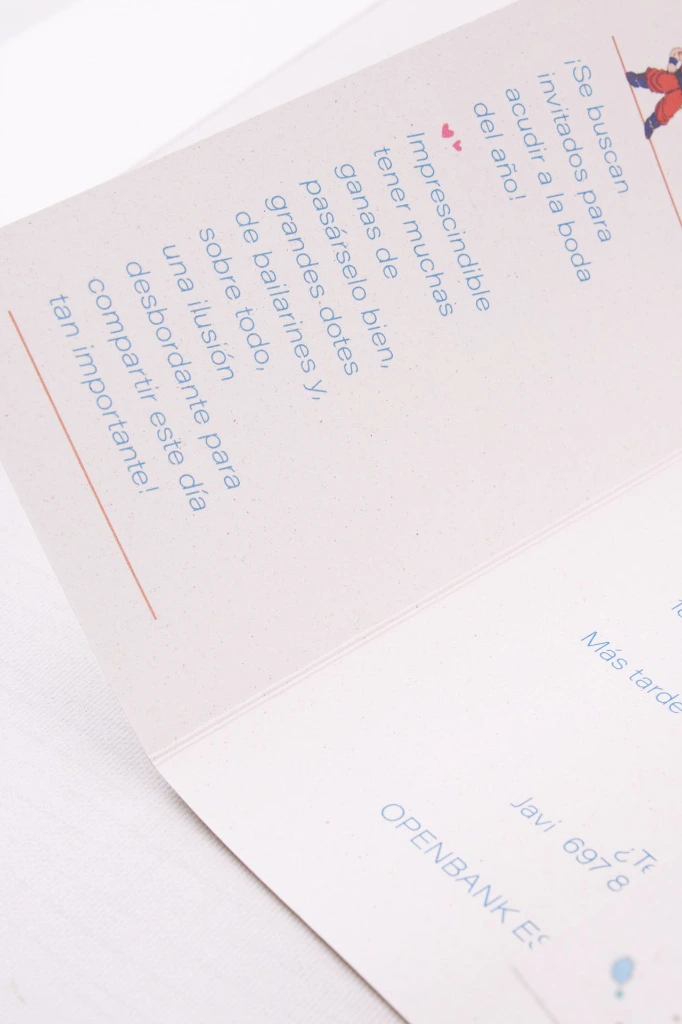 ¡Se buscan
invitados para
acudir a la boda
del año!
Imprescindible
tener muchas
ganas de
pasárselo bien,
grandes dotes
de bailarines y,
sobre todo,
una ilusión
desbordante para
compartir este día
tan importante!
Más tarde
Javi 6978
OPENBANK ES